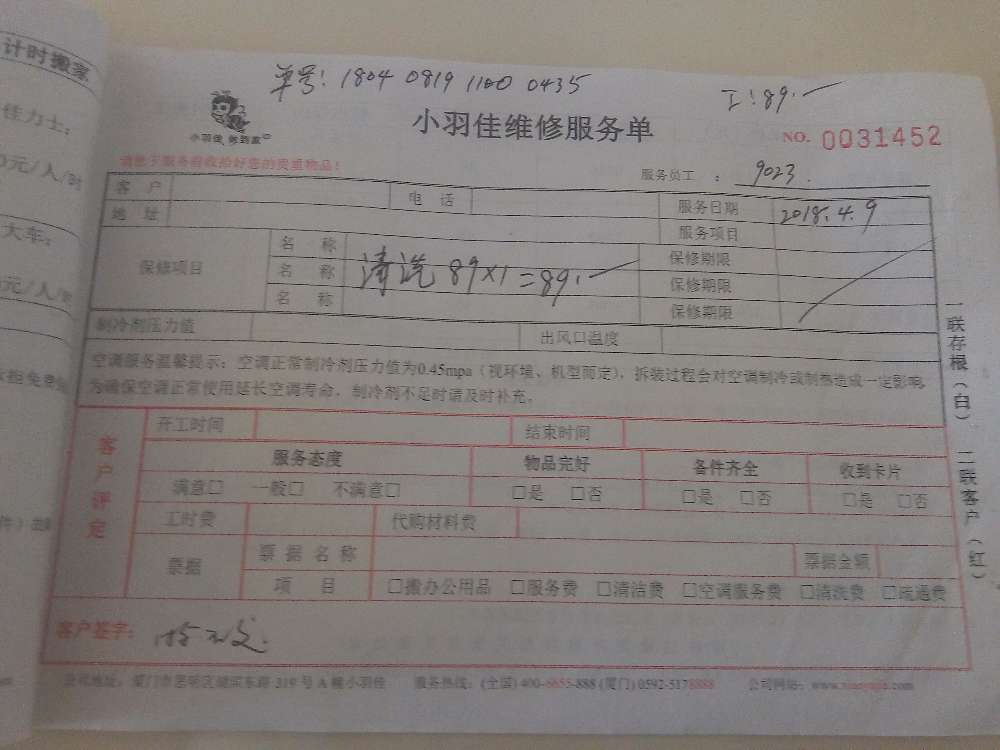 计时搬家
佳力士：
元/人/时
大车：
元/人/时
单号：1804 0819 1100 0435
工：89.
小羽佳 修到家
小羽佳维修服务单
NO. 0031452
服务员工：9023.
客户 电话 服务日期 2018.4.9
地址 服务项目
保修项目 名称 保修期限
名称 清洗 89×1=89. 保修期限
名称 保修期限
制冷剂压力值 出风口温度
空调服务温馨提示：空调正常制冷剂压力值为0.45mpa（视环境、机型而定），拆装过程会对空调制冷或制热造成一定影响，
为确保空调正常使用延长空调寿命，制冷剂不足时请及时补充。
客户评定
开工时间 结束时间
服务态度 物品完好 备件齐全 收到卡片
满意□ 一般□ 不满意□ □是 □否 □是 □否 □是 □否
工时费 代购材料费
票据 票据名称 票据金额
项目 □搬办公用品 □服务费 □清洁费 □空调服务费 □清洗费 □疏通费
客户签字：
公司地址：厦门市思明区湖滨东路 319 号 A 幢小羽佳 服务热线：(全国) 400-6655-888 (厦门) 0592-5178888 公司网站：www.xiaoyujia.com
一联存根（白） 二联客户（红）